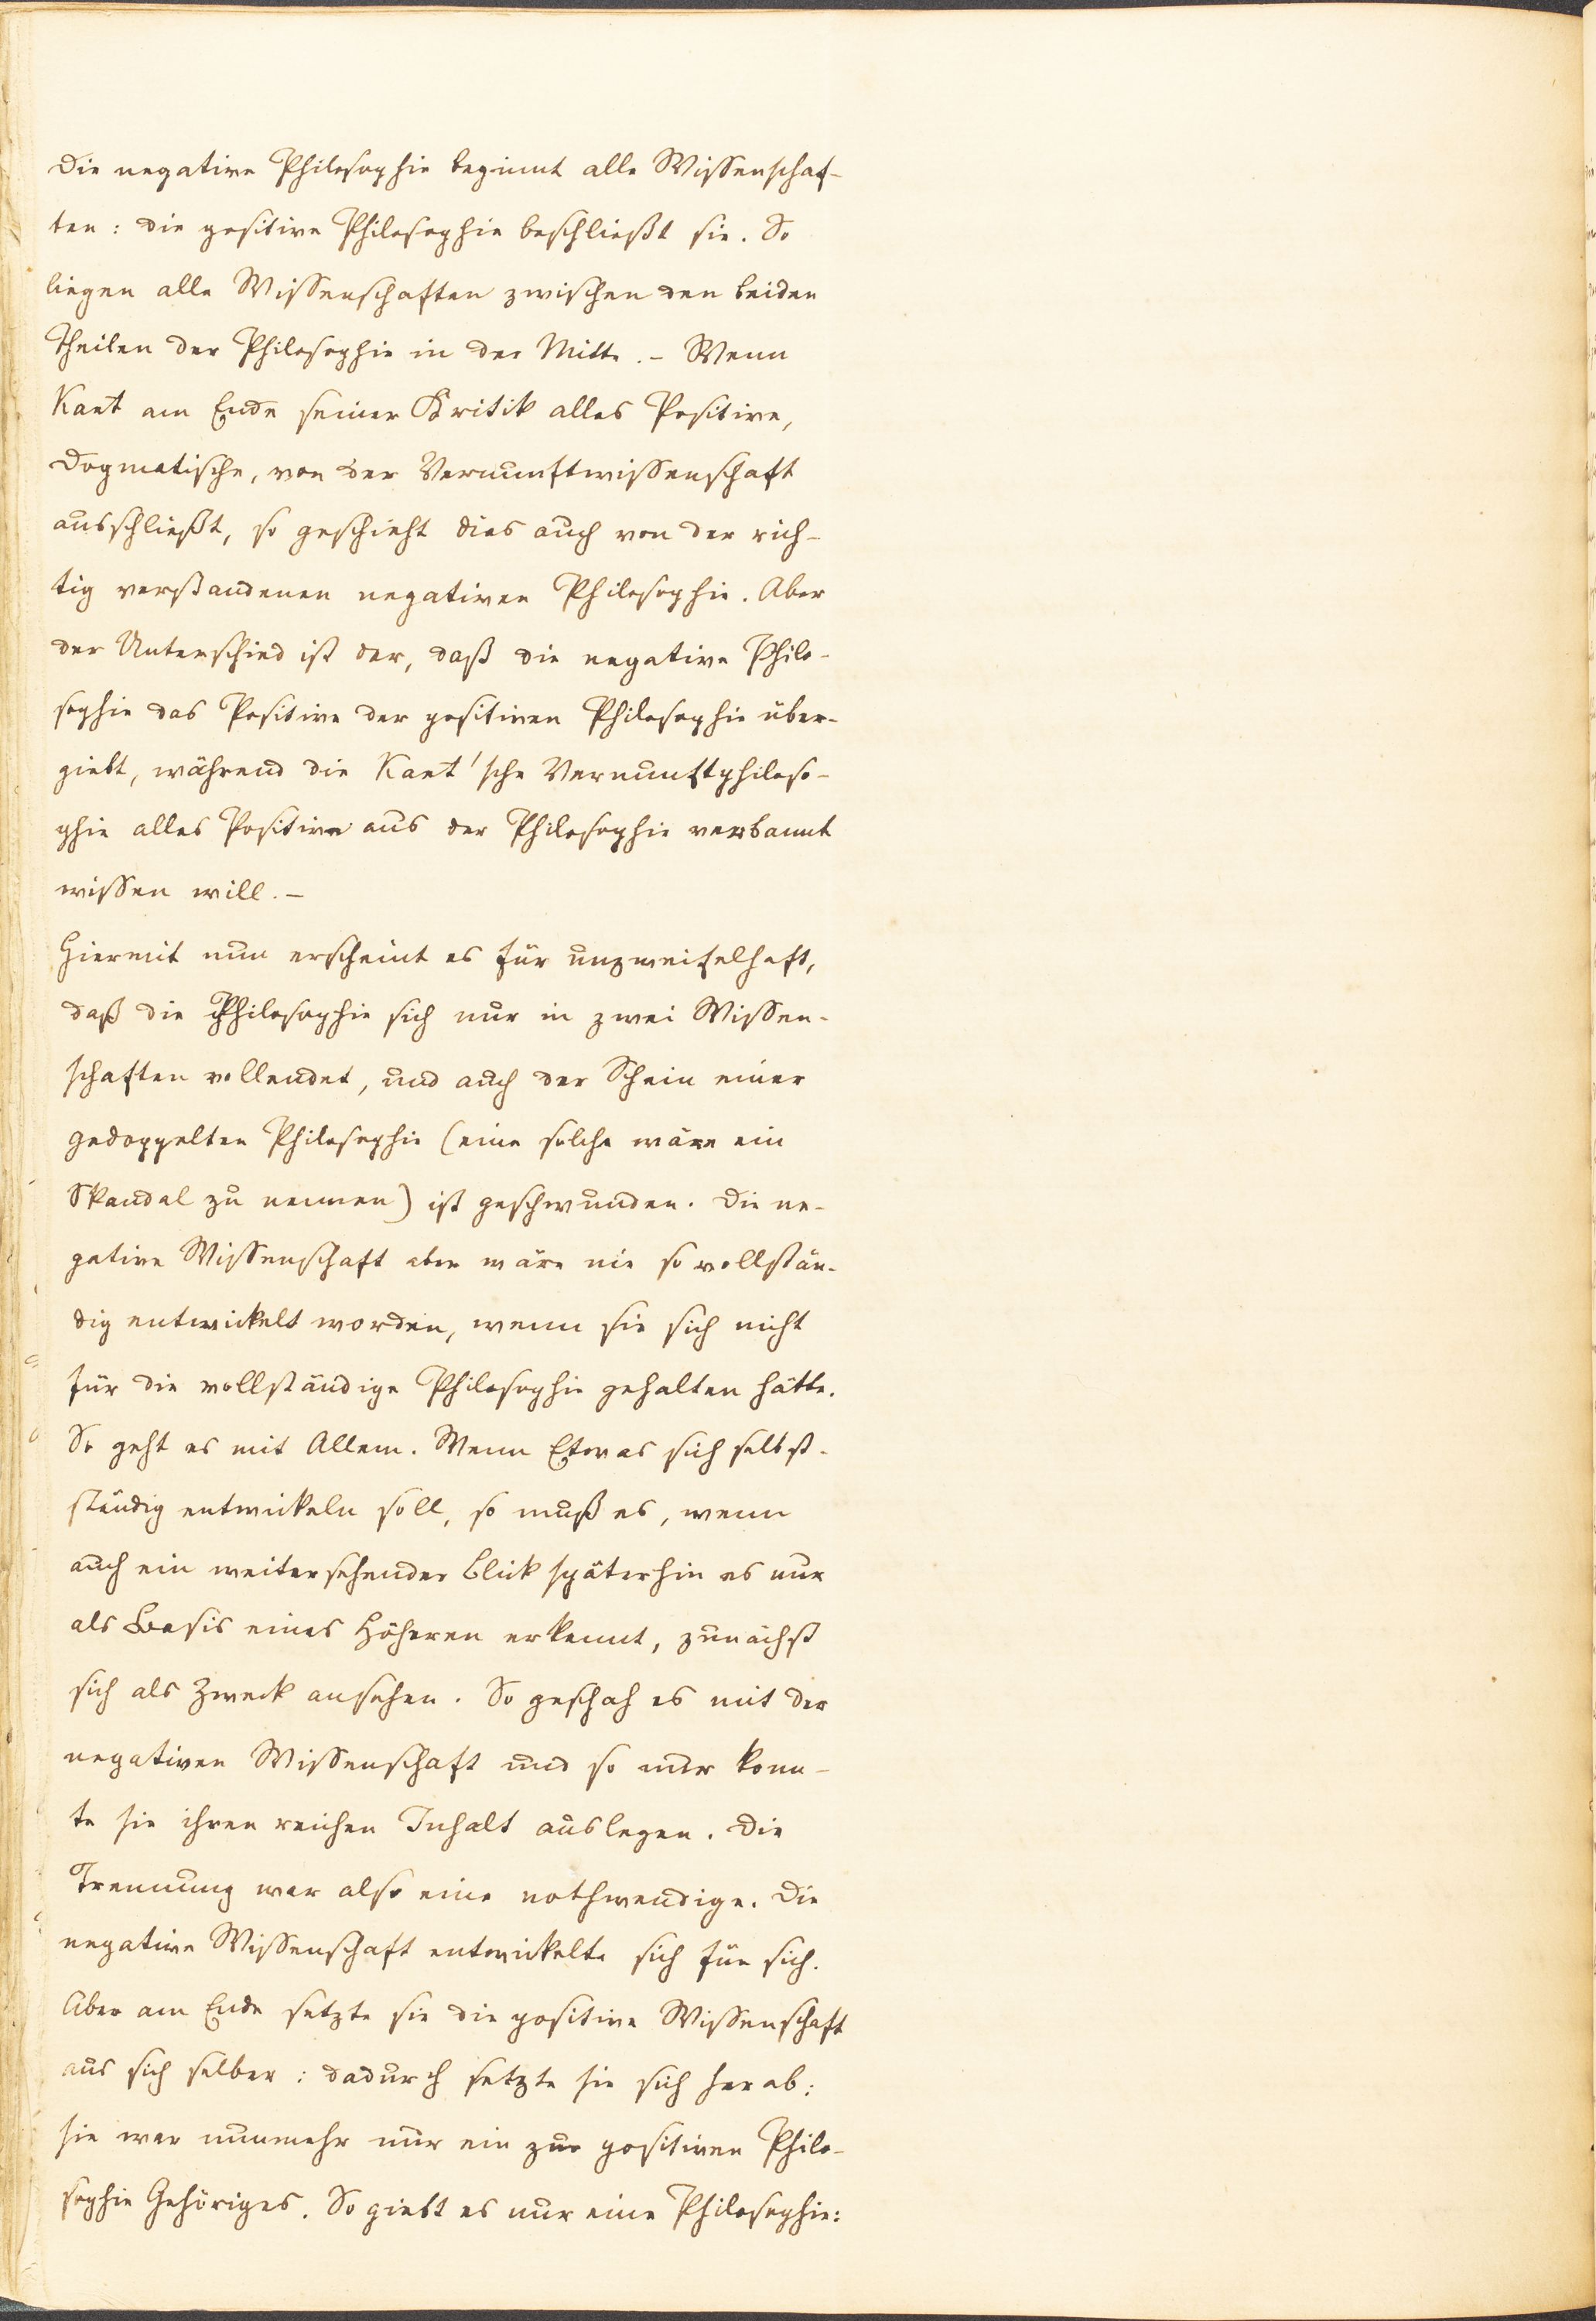 Die negative Philosophie beginnt alle Wissenschaf-
ten: die positive Philosophie beschließt sie. So
liegen alle Wissenschaften zwischen den beiden
Theilen der Philosophie in der Mitte. – Wenn
Kant am Ende seiner Kritik alles Positive,
Dogmatische, von der Vernunftwissenschaft
ausschließt, so geschieht dies auch von der rich-
tig verstandenen negativen Philosophie. Aber
der Unterschied ist der, daß die negative Philo-
sophie das Positive der positiven Philosophie über-
giebt, während die Kant'sche Vernunftphiloso-
phie alles Positive aus der Philosophie verbannt
wissen will. –
Hiermit nun erscheint es für unzweifelhaft,
daß die Philosophie sich nur in zwei Wissen-
schaften vollendet, und auch der Schein einer
gedoppelten Philosophie (eine solche wäre ein
Skandal zu nennen) ist geschwunden. Die ne-
gative Wissenschaft aber wäre nie so vollstän-
dig entwickelt worden, wenn sie sich nicht
für die vollständige Philosophie gehalten hätte.
So geht es mit Allem. Wenn Etwas sich selbst-
ständig entwickeln soll, so muß es, wenn
auch ein weitersehender Blick späterhin es nur
als Basis eines Höheren erkennt, zunächst
sich als Zweck ansehen. So geschah es mit der
negativen Wissenschaft und so nur konn-
te sie ihren reichen Inhalt auslegen. Die
Trennung war also eine nothwendige. Die
negative Wissenschaft entwickelte sich für sich.
Aber am Ende setzte sie die positive Wissenschaft
aus sich selber: dadurch setzte sie sich herab:
sie war nunmehr nur ein zur positiven Philo-
sophie Gehöriges. So giebt es nur eine Philosophie: